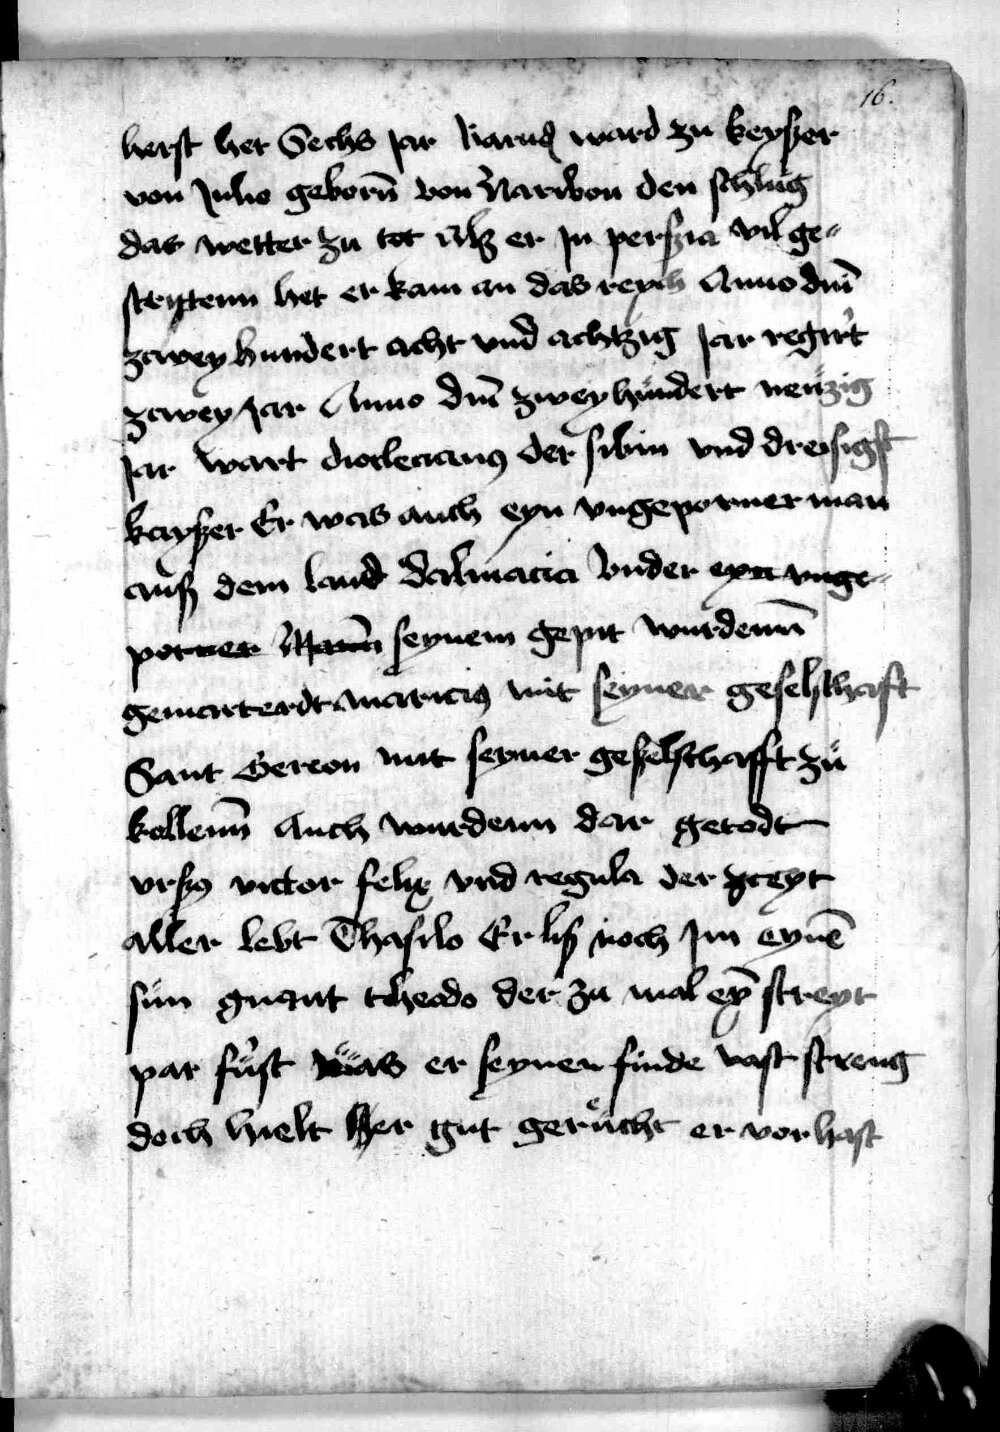 16.
herst het Sechs Jar Karuꝰ ward zu keyßer
von Julio geborn̄ von Naribon den schlug
das wetter zu tot Alß er Jn perßia vil ge-
strytenn het er kam an das reych Anno dm̄
zwey hundert acht vnd achtzig Jar regirt
zwey Jar Anno dm̄ zwey hundert neüzig
Jar wart dioclecianꝰ der sibin vnd dreisigst
kayßer Er was auch eyn vngeporner man
auß dem land dalmacia Vnder eyn vnge-
porner Mann̄ seynem gepit wurdenn̄
gemarterdt mauriciꝰ mit seyner geselschaft
Sant Gereon mit seyner geßelschafft zů
kollenn̄ Auch wurdenn dar getodt
vrßꝰ victor felix vnd regula der zceyt
aller lebt Thasilo Er liß noch Jm eynē
sůn gnant theodo der zu mal eȳ streyt
par fůrst was er seynen finde vast streng
doch hielt Her gut gerůcht er vor hast